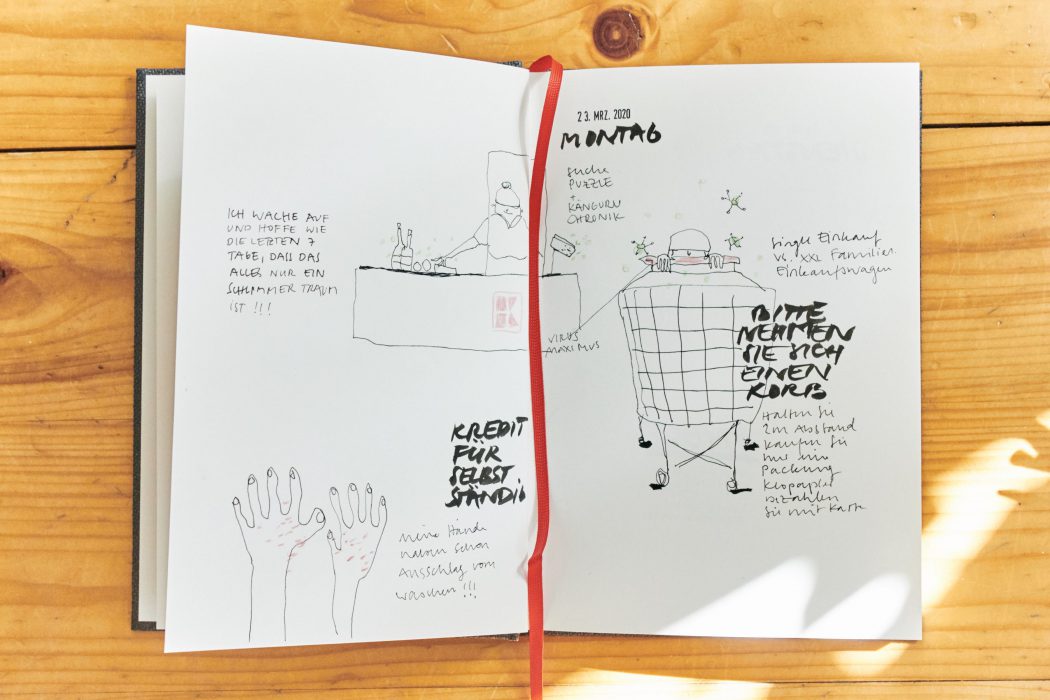 ICH WACHE AUF
UND HOFFE WIE
DIE LETZTEN 7
TAGE, DASS DAS
ALLES NUR EIN
SCHLIMMER TRAUM
IST !!!
KREDIT
FÜR
SELBST
STÄNDIG
meine Hände
haben schon
Ausschlag vom
waschen!!!
23. MRZ. 2020
MONTAG
suche
PUZZLE
+
KÄNGURU
CHRONIK
VIRUS
MAXIMUS
Single Einkauf
vs. XXL Familien
Einkaufswagen
BITTE
NEHMEN
SIE SICH
EINEN
KORB
Halten Sie
2m Abstand
kaufen Sie
nur eine
Packung
Klopapier
bezahlen
Sie mit Karte